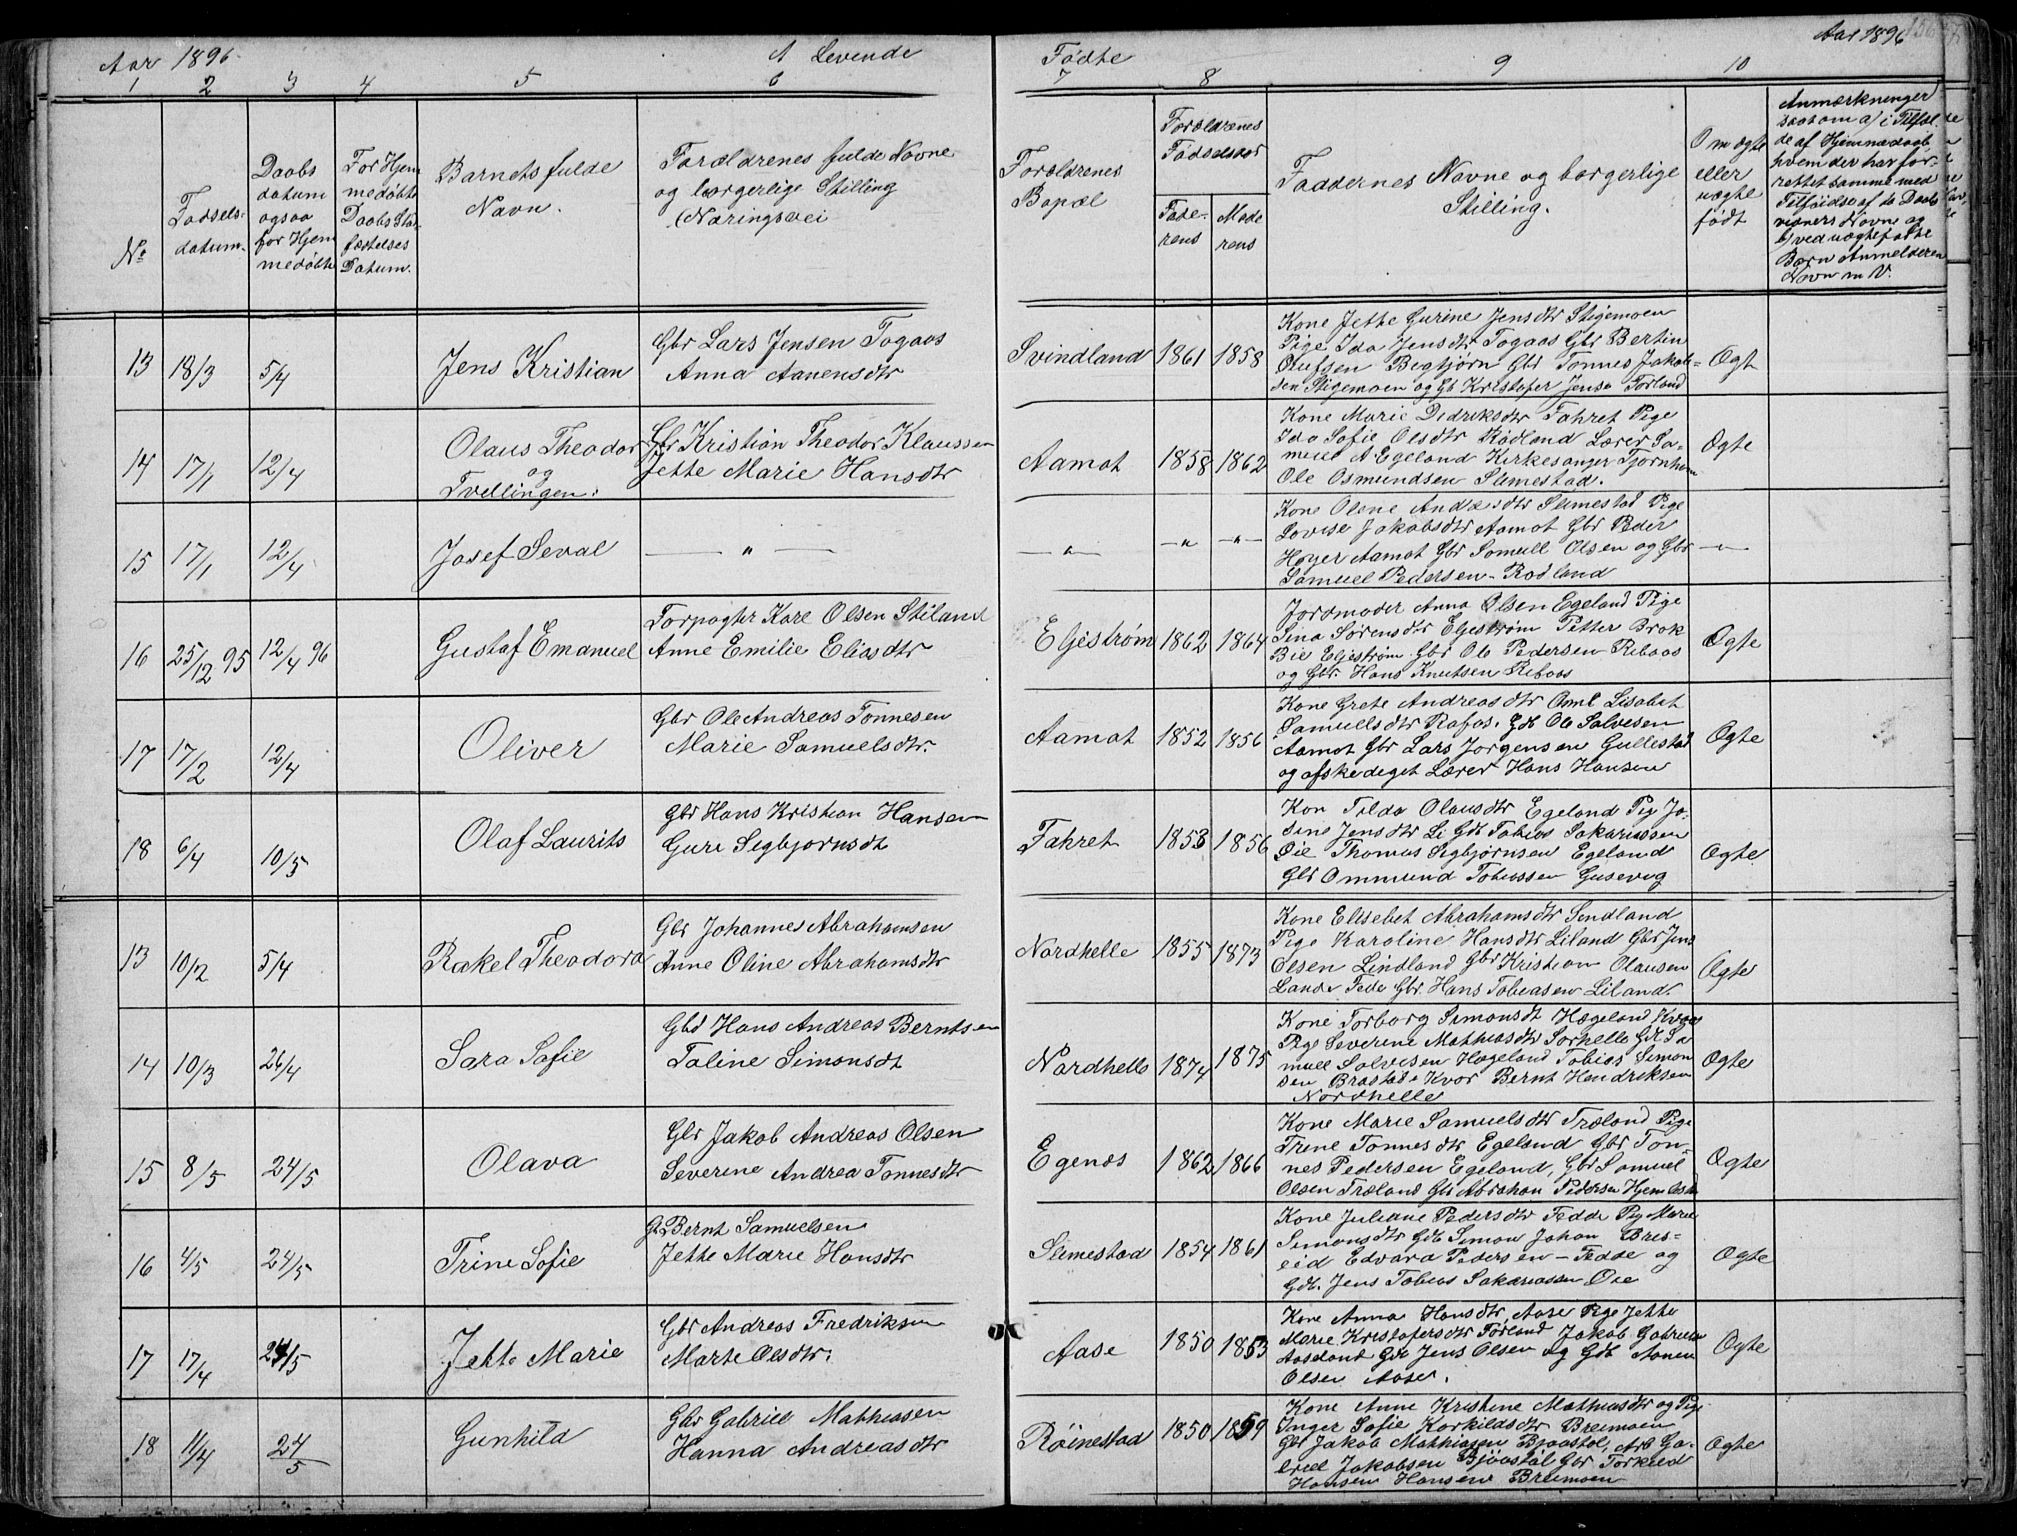 Aar 1896. A Levende
Fødte Aar 1896 156
1 2 3 4 5 6
7 8 9 10
No
Fødsels-
datum.
Daabs
datum
ogsaa
for Hjem
medøbte
For Hjem
medøbte
Daabs Sta-
fæstelses
Datum.
Barnets fulde
Navn.
Forældrenes fulde Navne
og borgerlige Stilling
(Næringsvei
Forældrenes
Bopæl
Forældrenes
Fødselsaar
Fade-
rens
Mode
rens
Faddernes Navne og borgerlige
Stilling.
Om ægte
eller
uægte
født
Anmærkninger
saasom a) i Tilfæl
de af Hjemmedaab,
hvem der har for-
rettet samme med
Tilføidse af to Daab
vidners Navne og
b) ved uægte fødte
Børn Anmelderen
Navn m V.
13 18/3 5/4 Jens Kristian
Gbr Lars Jensen Togaas
Anna Aanensdtr
Svindland 1861 1858
Kone Jette Gurine Jensdtr Stigemoen
Pige Ida Jensdtr Togaas Gbr Bertin
Olufsen Begbjørn Gbr Tonnes Jakob-
sen Stigemoen og Gb Kristofer Jense Forland
Ægt
14 17/1 12/4 Olaus Theodor
og
Tvillingen:
Gbr Kristian Theodor Klaussen
Jette Marie Hansdtr
Aamot 1858 1862
Kone Marie Didriksdtr Fahret Pige
Ida Sofie Olsdtr Rødland Lærer Sa-
muel A. Egeland Kirkesanger Tjørnhom
Ole Osmundsen Slimestad.
Ægte
15 17/1 12/4 Josef Seval
— " —
— " — — " — — " —
Kone Olene Andr.sdtr Slimestad Pige
Lovise Jakobsdtr Aamot Gbr Peder
Høyer Aamot Gbr Samuell Olsen og Gbr
Samuel Pedersen Rødland
— " —
16 25/12 95 12/4 96 Gustaf Emanuel
Forpagter Karl Olsen Stiland
Anne Emilie Eliasdtr
Eljestrøm 1862 1864
Jordmoder Anna Olsen Egeland Pige
Sina Sørensdtr Eljestrøm Petter Brok
Bie Eljestrøm Gbr Ole Pedersen Rebaas
og Gbr. Hans Knutsen Rebaas
Ægte
17 17/2 12/4 Oliver
Gbr Ole Andreas Tonnesen
Marie Samuelsdtr.
Aamot 1852 1856
Kone Grete Andreasdtr Omt Lisabet
Samuelsdtr Rafos. Gb Ole Salvesen
Aamot Gbr Lars Jørgensen Gullestad
og afskediget Lærer Hans Hansen
Ægte
18 6/4 10/5 Olaf Laurits
Gbr Hans Kristian Hansen
Guri Sigbjørnsdt
Fahret 1853 1856
Kon Tilda Olausdtr Egeland Pig Jo-
sine Jensdtr Li Gb Tobias Sakariassen
Øie Thomas Sigbjørnsen Egeland
Gbr Ommund Tobiassen Gusevig
Ægte
13 10/2 5/4 Rakel Theodora
Gbr Johannes Abrahamsen
Anne Oline Abrahamsdtr
Nordhelle 1855 1873
Kone Elisebet Abrahamsdtr Sindland
Pige Karoline Hansdtr Liland Gbr Jens
Olsen Lindland Gbr Kristian Olausen
Lande Fede Gbr. Hans Tobiasen Liland.
Ægte
14 10/3 26/4 Sara Sofie
Gbd Hans Andreas Berntsen
Taline Simonsdt
Nordhelle 1874 1875
Kone Torborg Simonsdt Hægeland Kvaas
Pige Severine Mathiasdtr Sorhelle Gb Sa
muel Salvesen Hægeland Tobias Simon
sen Brastad i Kvor Bernt Hendriksen
Nordhelle
Ægte
15 8/5 24/5 Olava
Gbr Jakob Andreas Olsen
Severine Andrea Tonnesdtr
Egenes 1862 1866
Kone Marie Samuelsdtr Træland Pige
Trine Tonnesdtr Egeland Gbr Ton-
nes Pedersen Egeland, Gbr Samuel
Olsen Træland Gbr Abraham Pedersen
Ægte
16 4/5 24/5 Trine Sofie
Gb Bernt Samuelsen
Jette Marie Hansdtr
Slimestad 1854 1861
Kone Juliane Pedersdtr Fedde Pig Marie
Simonsdtr Gb Simon Johan Bres-
eid Edvard Pedersen - Fedde og
Gb. Jens Tobias Sakariassen Øie
Ægte
17 17/4 24/5 Jette Marie
Gbr Andreas Fredriksen
Marte Olsdtr.
Aase 1850 1853
Kone Anna Hansdtr, Aase Pige Jette
Marie Kristofersdtr Førland Jakob Gabriels
Aaseland Gb Jens Olsen og Gb Aanen
Olsen Aase.
Ægte
18 11/4 24/5 Gunhild
Gbr Gabriel Mathiasen
Hanna Andreasdtr
Røinestad 1850 1859
Kone Anne Kristine Mathiasdtr og Pige
Inger Sofie Korkildsdtr Breimoen
Gbr Jakob Mathiasen Bjøastøl, Arb Ga-
briel Jakobsen Bjøastøl Gbr Torkild
Hansen Hansen Breimoen
Ægte